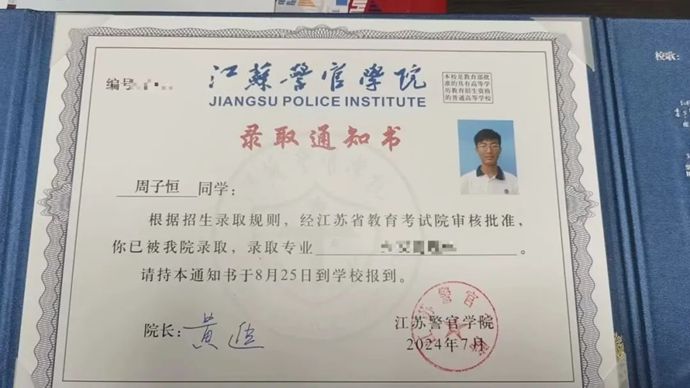 编号
江苏警官学院
JIANGSU POLICE INSTITUTE
本校是教育部批
准的具有高等学
历教育招生资格
的普通高等学校
录取通知书
周子恒同学：
根据招生录取规则，经江苏省教育考试院审核批准，
你已被我院录取，录取专业。
请持本通知书于8月25日到学校报到。
院长：
江苏警官学院
2024年7月
校歌：